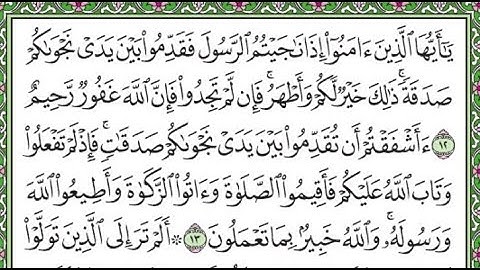 يَٰٓأَيُّهَا ٱلَّذِينَ ءَامَنُوٓا۟ إِذَا نَٰجَيْتُمُ ٱلرَّسُولَ فَقَدِّمُوا۟ بَيْنَ يَدَىْ نَجْوَىٰكُمْ
صَدَقَةً ۚ ذَٰلِكَ خَيْرٌ لَّكُمْ وَأَطْهَرُ ۚ فَإِن لَّمْ تَجِدُوا۟ فَإِنَّ ٱللَّهَ غَفُورٌ رَّحِيمٌ
١٢ ءَأَشْفَقْتُمْ أَن تُقَدِّمُوا۟ بَيْنَ يَدَىْ نَجْوَىٰكُمْ صَدَقَٰتٍ ۚ فَإِذْ لَمْ تَفْعَلُوا۟
وَتَابَ ٱللَّهُ عَلَيْكُمْ فَأَقِيمُوا۟ ٱلصَّلَوٰةَ وَءَاتُوا۟ ٱلزَّكَوٰةَ وَأَطِيعُوا۟ ٱللَّهَ
وَرَسُولَهُۥ ۚ وَٱللَّهُ خَبِيرٌۢ بِمَا تَعْمَلُونَ ١٣ ۞ أَلَمْ تَرَ إِلَى ٱلَّذِينَ تَوَلَّوْا۟